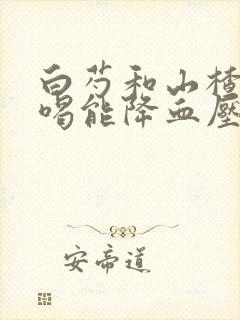 白芍和山楂
喝能降血壓
安帝道